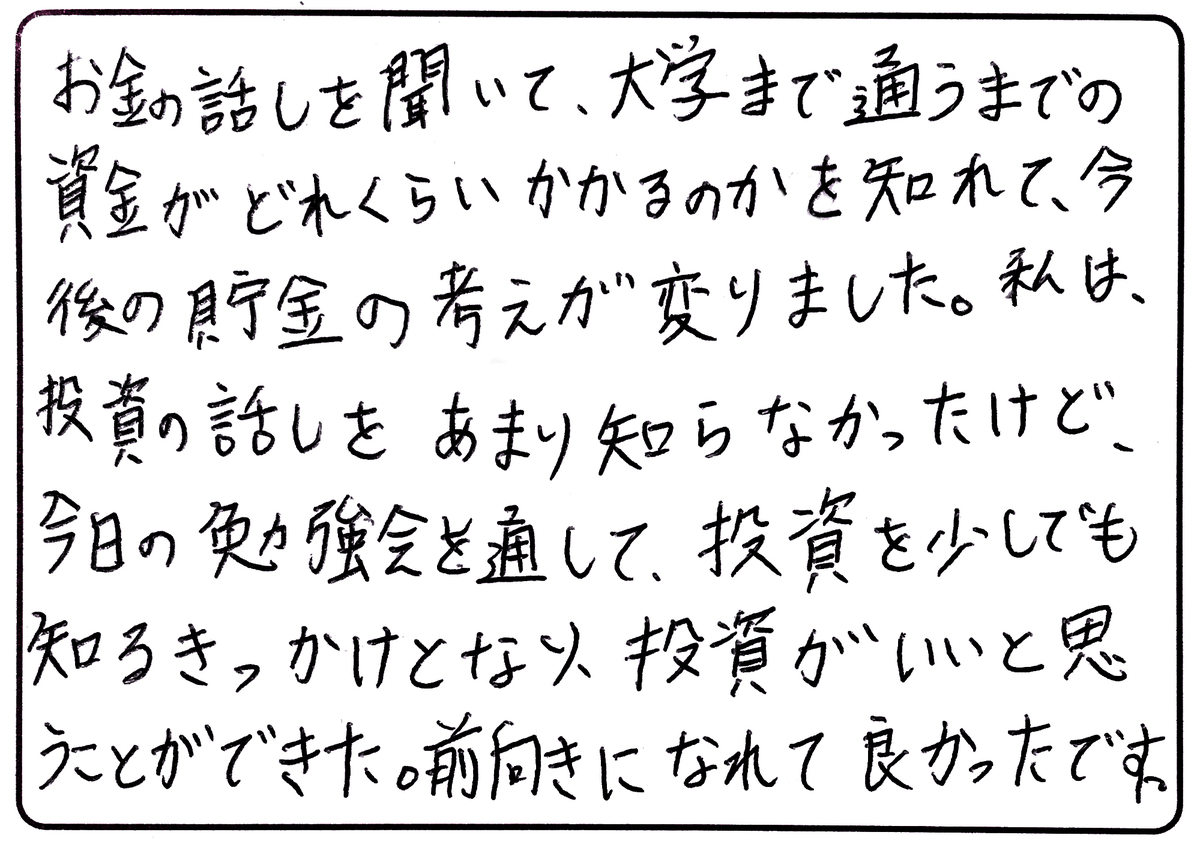 お金の話しを聞いて、大学まで通うまでの
資金がどれくらいかかるのかを知れて、今
後の貯金の考えが変りました。私は、
投資の話しをあまり知らなかったけど、
今日の勉強会を通して、投資を少しでも
知るきっかけとなり、投資がいいと思
うことができた。前向きになれて良かったです。